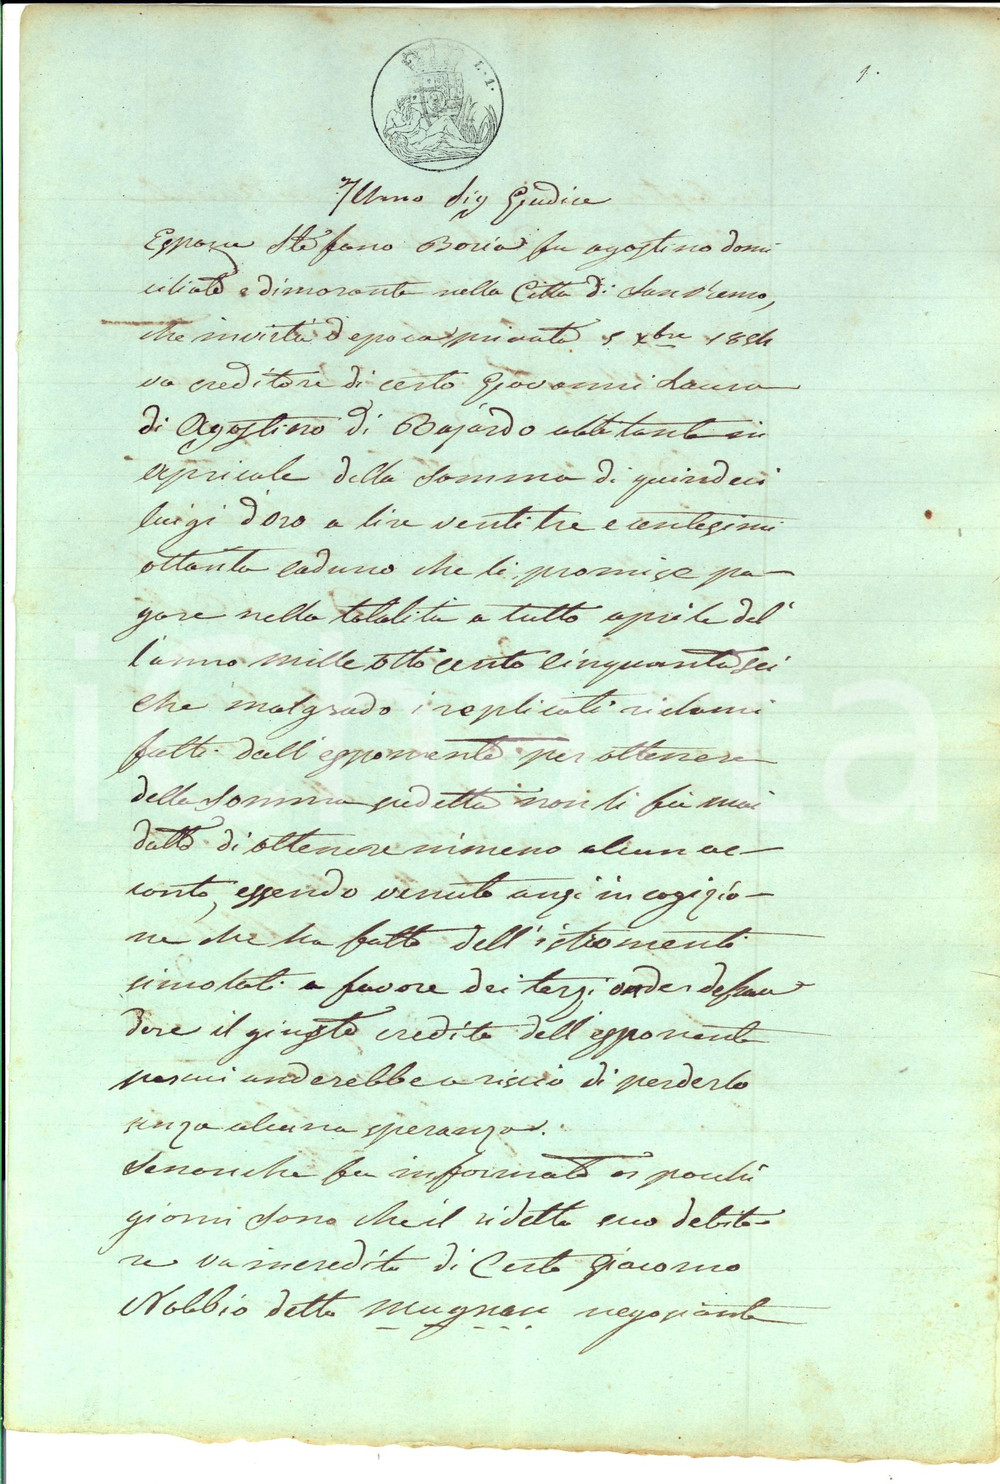 L. 1.
1.
Illmo Sig Giudice
Espone Stefano Boria fu agostino domi
ciliato e dimorante nella Città di San Remo,
che in virtù d'epoca privata 5 xbre 1854
va creditore di certo Giovanni Laura
di Agostino di Bajardo abbitante in
apricale della somma di quindeci
luigi d'oro a lire venti tre e centesimi
ottanta caduno che li promise pa-
gare nella totalità a tutto aprile del
l'anno mille otto cento cinquanta sei
che malgrado i replicati riclami
fatti dall'esponente per ottenere
della somma sudetta non li fu mai
datto di ottenere nimeno alcun ac-
conto, essendo venuto anzi in cognizio-
ne che ha fatto dell'istromenti
simolati a favore dei terzi onde defrau
dare il giusto credito dell'esponente
per cui anderebbe a risico di perderlo
senza alcuna speranza.
Senonche fu informato or pochi
giorni sono che il ridetto suo debito-
re va in credito di Certo Giacomo
Nobbio detto Mugnau negoziante